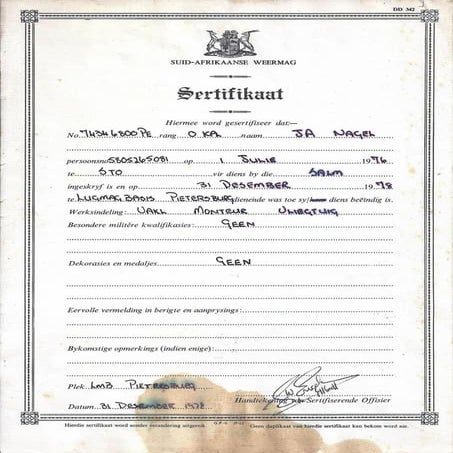 DD 342
SUID-AFRIKAANSE WEERMAG
Sertifikaat
Hiermee word gesertifiseer dat:—
No. 74346800PE rang O KPL naam JA NAGEL
persoonsno 5805265081 op 1 JULIE 1976
te STO vir diens by die SALM
ingeskryf is en op 31 DESEMBER 1978
te LUGMAG BASIS PIETERSBURG dienende was toe sy diens beëindig is.
Werksindeling: VAKL MONTEUR VLIEGTUIG
Besondere militêre kwalifikasies: GEEN
Dekorasies en medaljes GEEN
Eervolle vermelding in berigte en aanprysings:
Bykomstige opmerkings (indien enige):
Plek LMB PIETERSBURG
Handtekening van Sertifiserende Offisier
Datum 31 DESEMBER 1978
Hierdie sertifikaat word sonder verandering uitgereik
Geen duplikaat van hierdie sertifikaat kan bekom word nie.